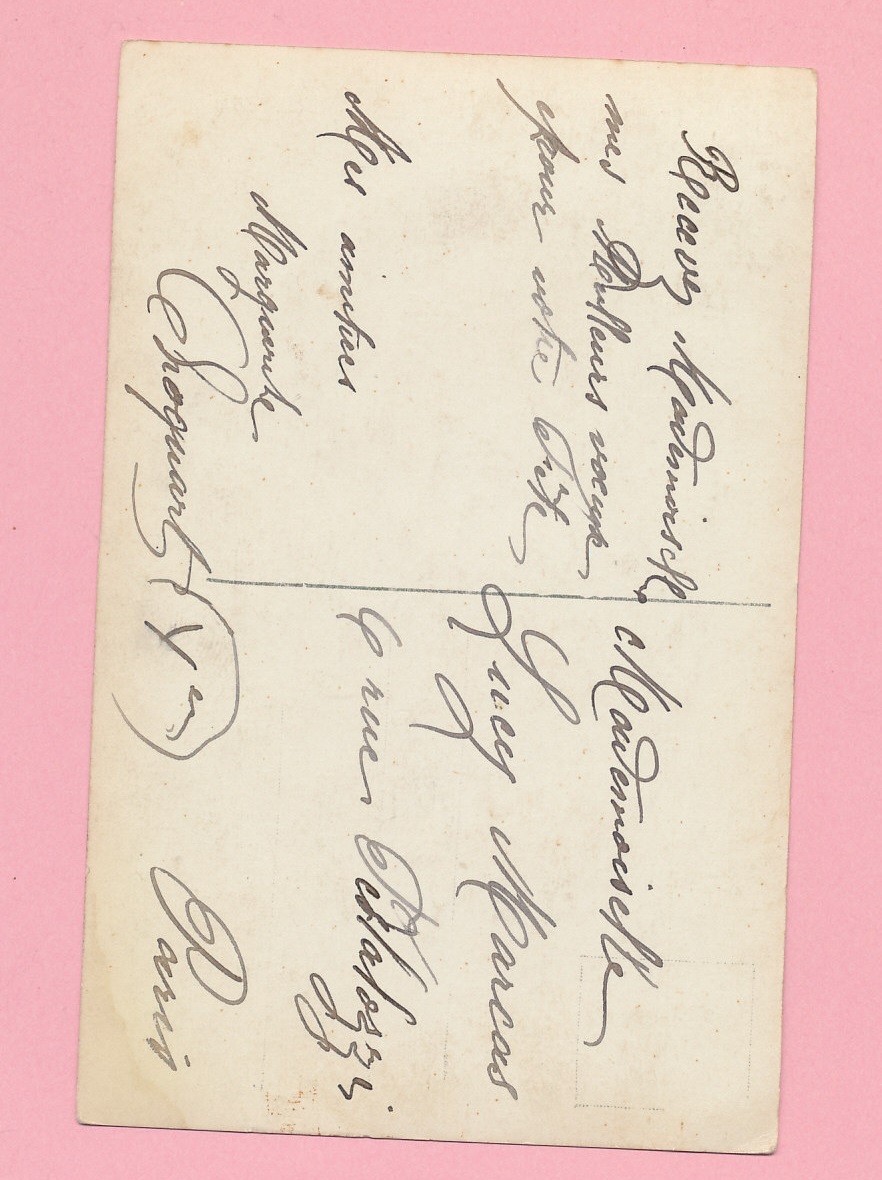 Recevez Mademoiselle,
mes Meilleurs voeux
pour votre fête
Mes amitiés
Marguerite
Mademoiselle
Lucy Marcus
6 rue Pestalozzi
Paris
V em